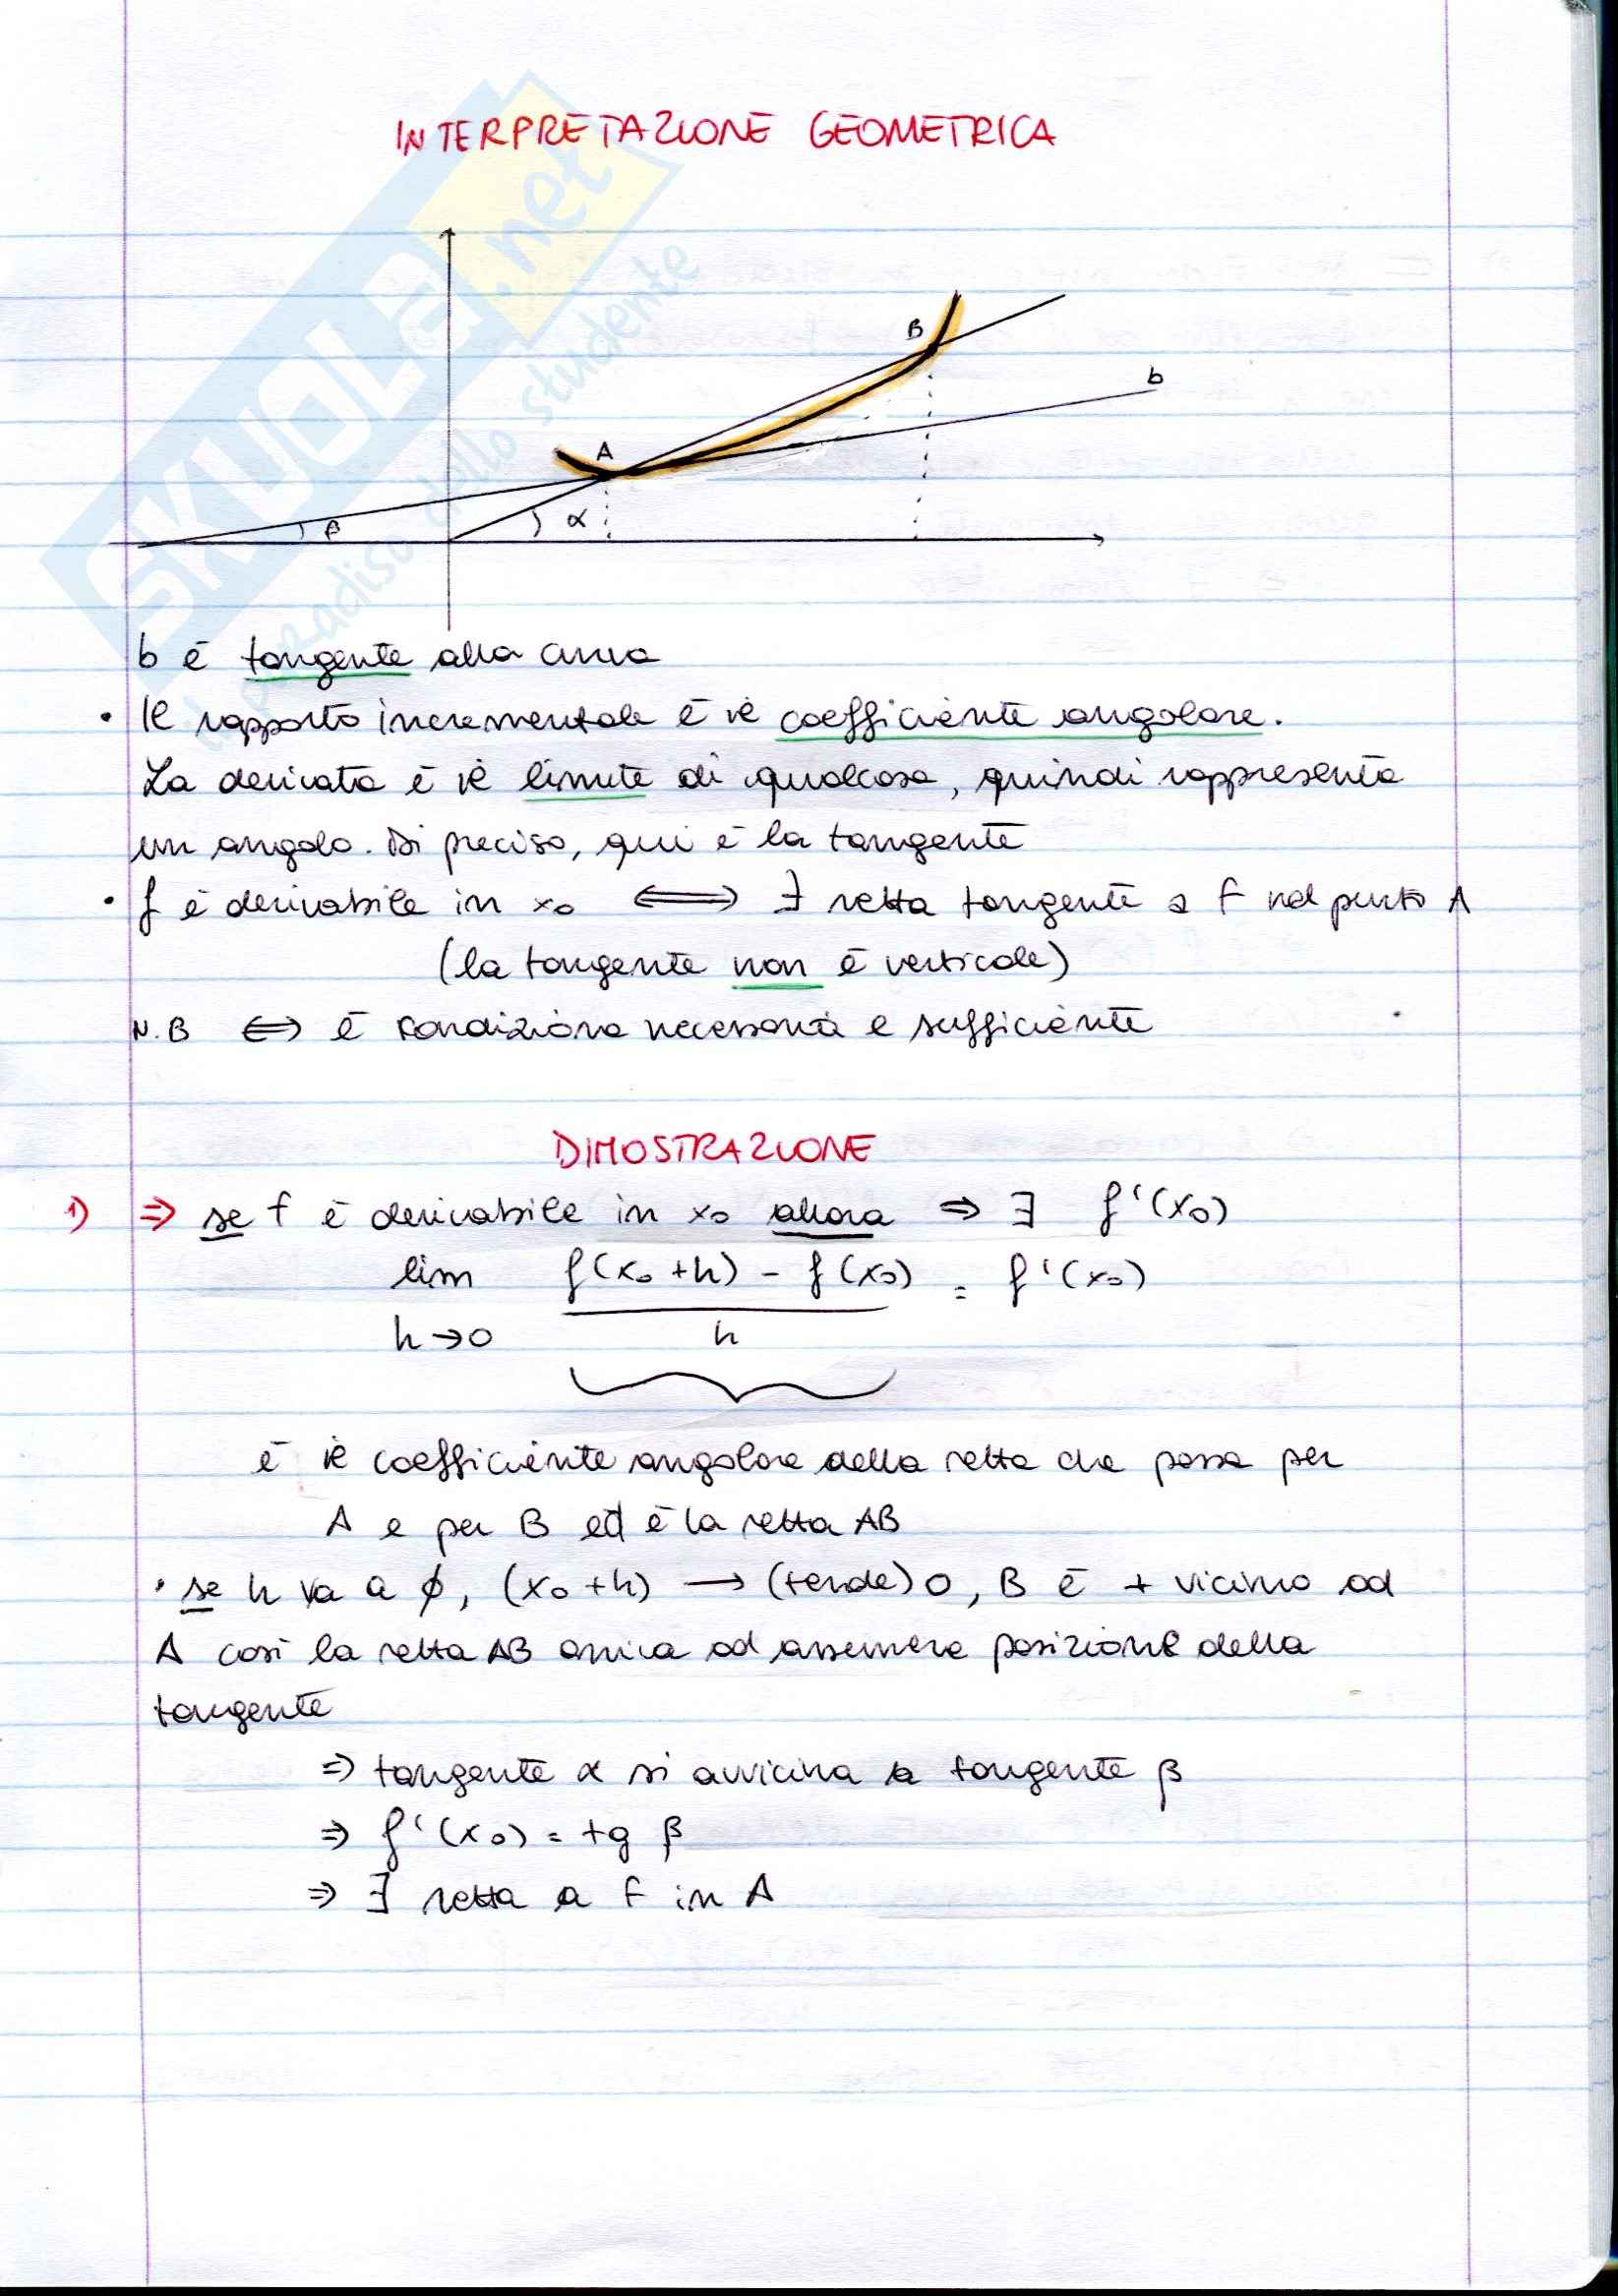 INTERPRETAZIONE GEOMETRICA
SKUOLA.net
il paradiso dello studente
B
b
A
β
α
b è tangente alla curva
• Il rapporto incrementale è il coefficiente angolare.
La derivata è il limite di qualcosa, quindi rappresenta
un angolo. Di preciso, qui è la tangente
• f è derivabile in x₀ ⟺ ∃ retta tangente a f nel punto A
(la tangente non è verticale)
N.B ⟺ è condizione necessaria e sufficiente
DIMOSTRAZIONE
1) ⇒ se f è derivabile in x₀ allora ⇒ ∃ f'(x₀)
lim f(x₀+h) - f(x₀) = f'(x₀)
h→0 h
è il coefficiente angolare della retta che passa per
A e per B ed è la retta AB
• se h va a ϕ, (x₀+h) → (tende) 0, B è + vicino ad
A così la retta AB arriva ad assumere posizione della
tangente
⇒ tangente α si avvicina a tangente β
⇒ f'(x₀) = tg β
⇒ ∃ retta a f in A